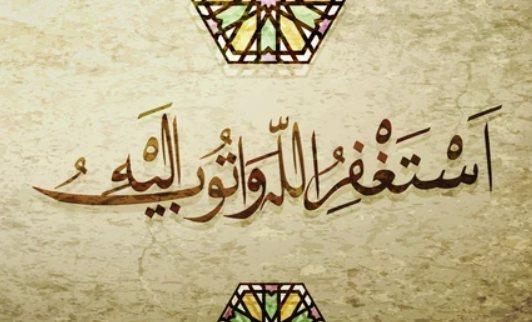 أَسْتَغْفِرُ اللّٰهَ وَاتُوبُ اِلَيْهِ